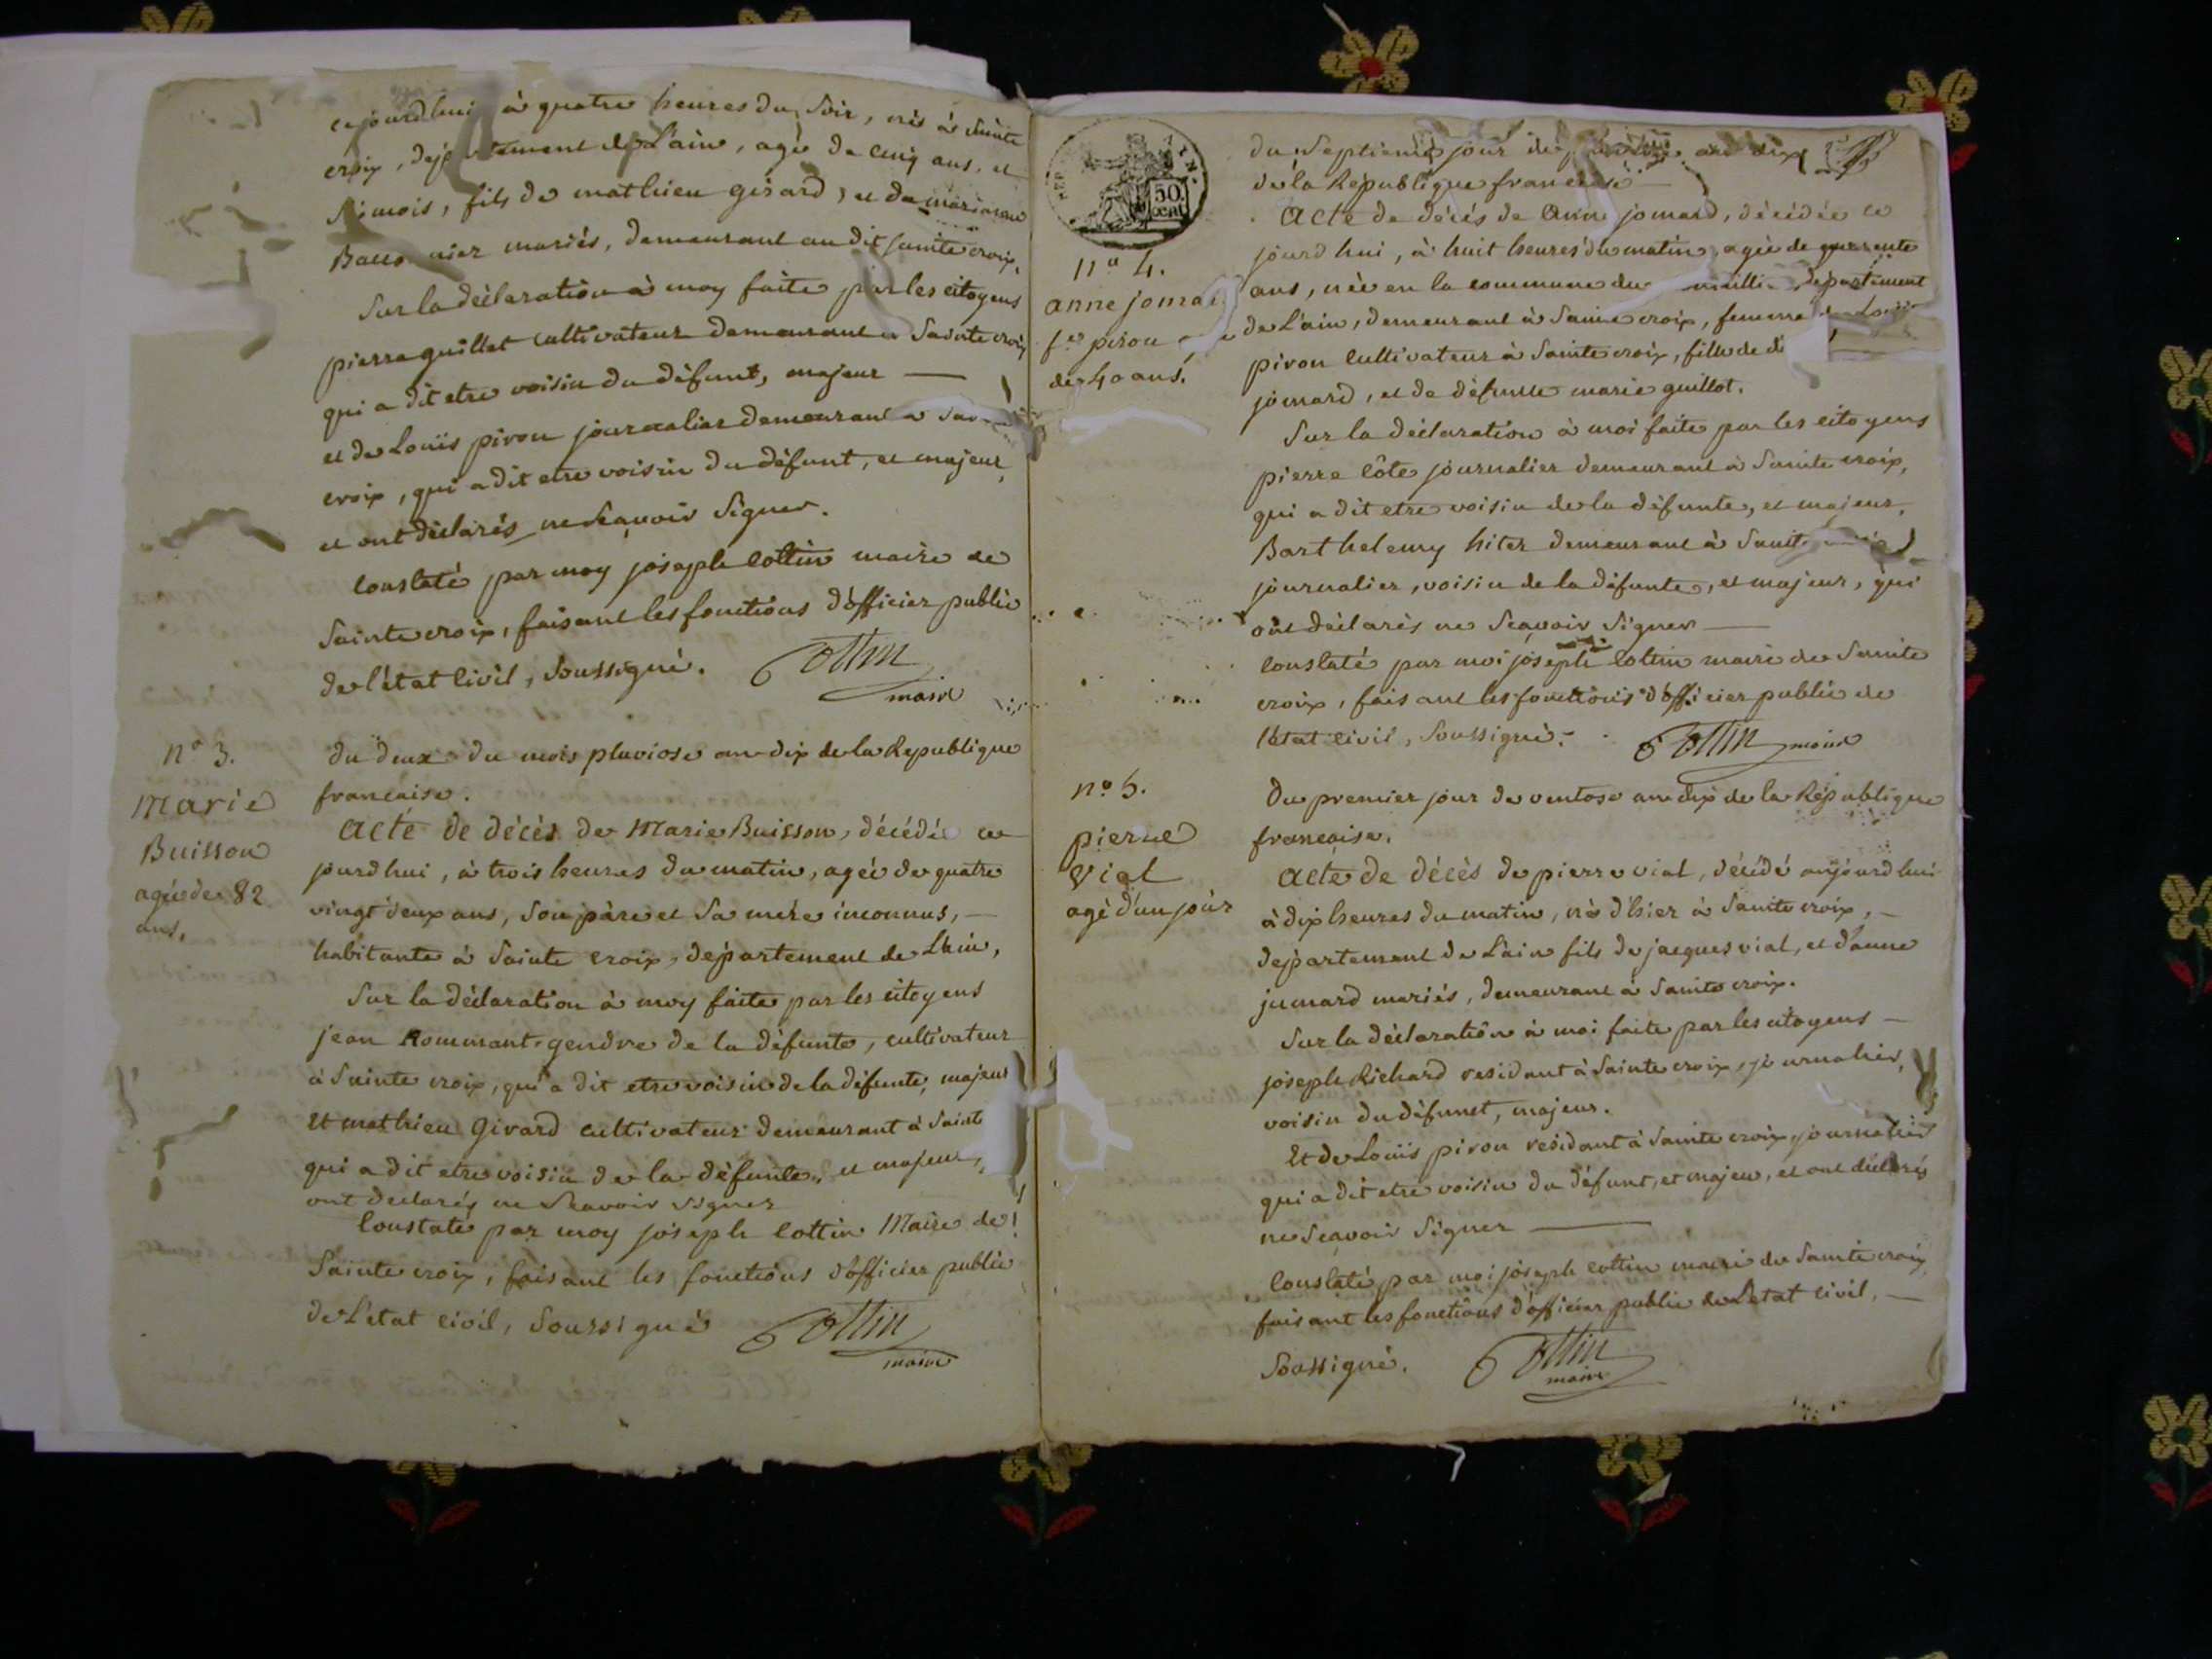 cejourdhui à quatre heures du Soir, nés à Sainte
croix, département de L'ain, agé de cinq ans, et
mois, fils de mathieu girard, et de
mariés, demeurant au dit Sainte croix.
Sur la déclaration à moy faite par les citoyens
pierre guillet cultivateur demeurant a Sainte croix
qui a dit etre voisin du défunt, majeur —
et de Louis piron journalier demeurant a
croix, qui a dit etre voisin du défunt, et majeur,
et ont déclarés ne Scavoir Signer.
Constaté par moy joseph Cottin maire de
Sainte croix, faisant les fonctions d'officier public
de l'état Civil, Soussigné. Cottin
maire
n° 3.
Marie
Buisson
agée de 82
ans,
du deux du mois pluviose an dix de la Republique
francaise.
Acte de décès de Marie Buisson, décédée ce
jourdhui, à trois heures du matin, agée de quatre
vingt deux ans, Son père et Sa mère inconnus, —
habitante à Sainte Croix, département de L'ain,
Sur la déclaration à moy faite par les citoyens
jean Rommant gendre de la défunte, cultivateur
à Sainte croix, qui a dit etre voisin de la défunte, majeur
Et mathieu Girard cultivateur demeurant à Sainte
qui a dit etre voisin de la défunte, et majeur,
ont declarés ne Scavoir Signer
Constaté par moy joseph Cottin Maire de
Sainte croix, faisant les fonctions d'officier public
de L'etat Civil, Soussigné Cottin
maire
50.
cent
n° 4.
anne jomar
fe piron
de 40 ans.
du Septieme jour de an dix
de la République francaise —
Acte de décès de Anne jomard, décédée ce
jourd hui, à huit heures du matin, agée de quarante
ans, née en la commune de département
de L'ain, demeurant à Sainte croix, femme de Louis
piron Cultivateur à Sainte croix, fille de
jomard, et de défunte marie guillot.
Sur la déclaration à moi faite par les citoyens
pierre Côte journalier demeurant à Sainte croix,
qui a dit etre voisin de la défunte, et majeur,
Barthelemy hiter demeurant à Sainte
journalier, voisin de la défunte, et majeur, qui
ont déclarés ne Scavoir Signer —
Constaté par moi joseph Cottin maire de Sainte
croix, faisant les fonctions d'officier public de
l'état civil, Soussigné. Cottin maire
n° 5.
pierre
Vial
agé d'un jour
Du premier jour de ventose an dix de la République
francaise.
Acte de décès de pierre vial, décédé aujourdhui
à dix heures du matin, né d'hier à Sainte croix, —
departement de L'ain fils de jacques vial, et d'anne
jumard mariés, demeurant à Sainte croix.
Sur la déclaration à moi faite par les citoyens —
joseph Richard residant à Sainte croix, journalier,
voisin du défunct, majeur.
Et de Louis piron residant à Sainte croix, journalier
qui a dit etre voisin du défunt, et majeur, et ont déclarés
ne Scavoir Signer —
Constaté par moi joseph Cottin maire de Sainte croix
faisant les fonctions d'officier public de L'etat civil, —
Soussigné. Cottin
maire